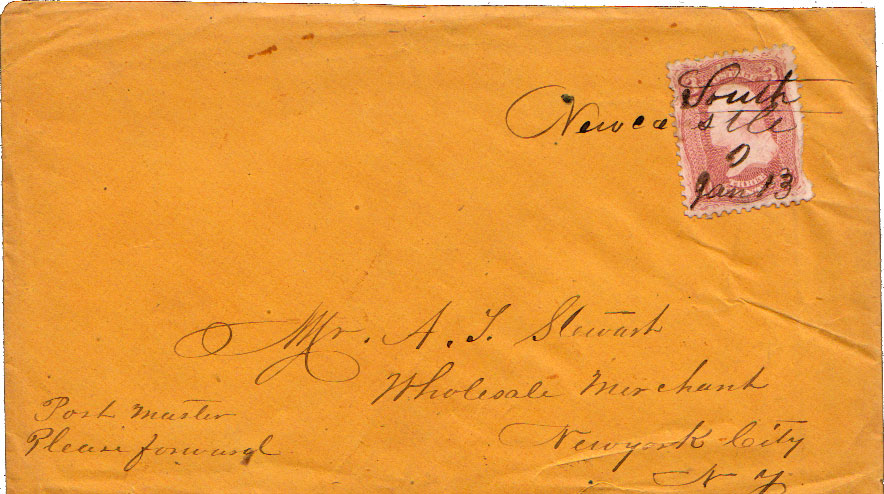 South
Newcastle
0
Jan 13
Mr. A. T. Stewart
Wholesale Merchant
Newyork City
N Y
Post Master
Please forward